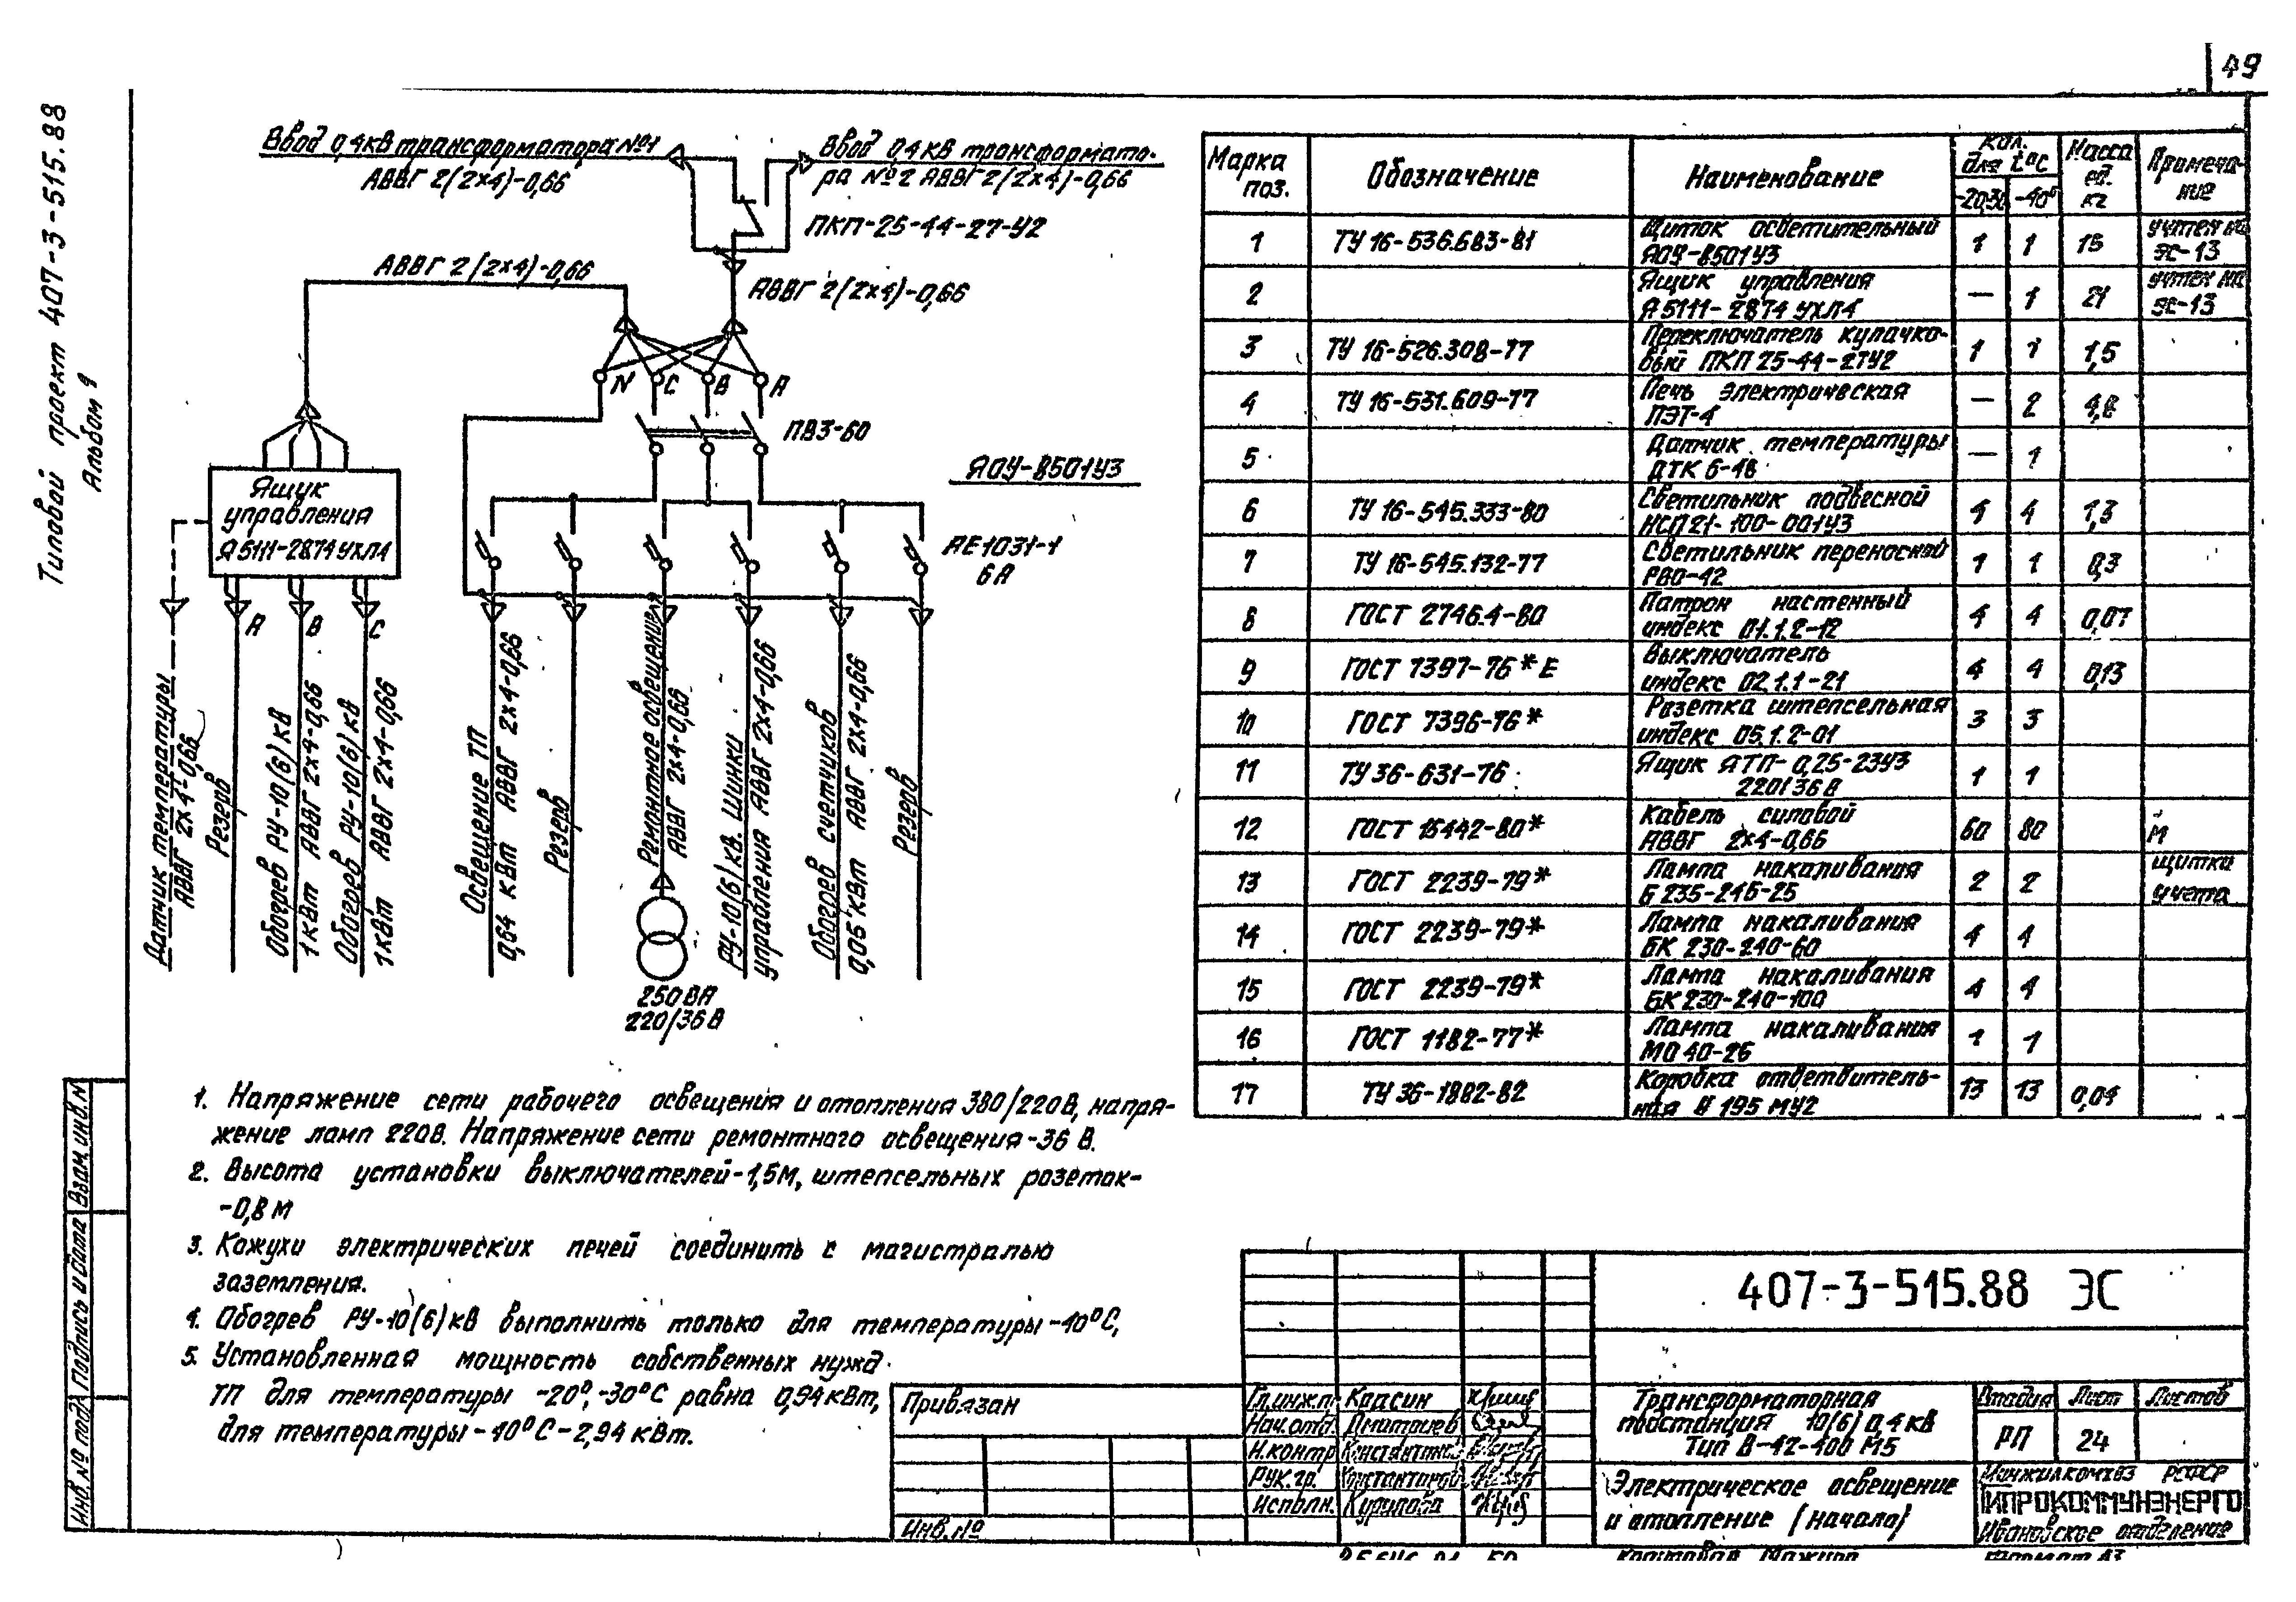 49
Типовой проект 407-3-515.88
Альбом 9
Ввод 0,4кВ трансформатора №1
АВВГ 2(2х4)-0,66
Ввод 0,4 кВ трансформато-
ра №2 АВВГ 2(2х4)-0,66
ПКП-25-44-27-У2
АВВГ 2(2х4)-0,66
АВВГ 2(2х4)-0,66
N С В А
ПВ3-60
ЯОУ-8501У3
Ящик
управления
Я5111-2874УХЛ4
АЕ1031-1
6А
А В С
Датчик температуры
АВВГ 2х4-0,66
Резерв
Обогрев РУ-10(6)кВ
1кВт АВВГ 2х4-0,66
Обогрев РУ-10(6)кВ
1кВт АВВГ 2х4-0,66
Освещение ТП
0,64 кВт АВВГ 2х4-0,66
Резерв
Ремонтное освещение
АВВГ 2х4-0,66
250ВА
220/36 В
РУ-10(6)кв. Шинки
управления АВВГ 2х4-0,66
Обогрев счетчиков
0,05 кВт АВВГ 2х4-0,66
Резерв
Марка поз. Обозначение Наименование Кол. для t°С -20,30 -40° Масса ед. кг Примеча-ние
1 ТУ 16-536.683-81 Щиток осветительный ЯОУ-8501У3 1 1 15 учтен на ЭС-13
2 Ящик управления Я5111-2874 УХЛ4 — 1 21 учтен на ЭС-13
3 ТУ 16-526.308-77 Переключатель кулачко-вый ПКП 25-44-27У2 1 1 1,5
4 ТУ 16-531.609-77 Печь электрическая ПЭТ-4 — 2 4,8
5 Датчик температуры ДТКБ-48 — 1
6 ТУ 16-545.333-80 Светильник подвесной НСП21-100-001У3 4 4 1,3
7 ТУ 16-545.132-77 Светильник переносной РВО-42 1 1 0,3
8 ГОСТ 2746.4-80 Патрон настенный индекс 01.1.2-12 4 4 0,07
9 ГОСТ 7397-76*Е Выключатель индекс 02.1.1-21 4 4 0,13
10 ГОСТ 7396-76* Розетка штепсельная индекс 05.1.2-01 3 3
11 ТУ 36-631-76 Ящик ЯТП-0,25-23У3 220/36 В 1 1
12 ГОСТ 16442-80* Кабель силовой АВВГ 2х4-0,66 60 80 м
13 ГОСТ 2239-79* Лампа накаливания Б 235-245-25 2 2 щитки учета
14 ГОСТ 2239-79* Лампа накаливания БК 230-240-60 4 4
15 ГОСТ 2239-79* Лампа накаливания БК 230-240-100 4 4
16 ГОСТ 1182-77* Лампа накаливания МО 40-25 1 1
17 ТУ 36-1882-82 Коробка ответвитель-ная У 195 МУ2 13 13 0,04
1. Напряжение сети рабочего освещения и отопления 380/220В, напря-
жение ламп 220В. Напряжение сети ремонтного освещения-36 В.
2. Высота установки выключателей-1,5м, штепсельных розеток-
-0,8 м
3. Кожухи электрических печей соединить с магистралью
заземления.
4. Обогрев РУ-10(6)кВ выполнить только для температуры -40°С,
5. Установленная мощность собственных нужд
ТП для температуры -20°,-30°С равна 0,94кВт,
для температуры -40°С-2,94 кВт.
Взам.инв.N
Подпись и дата
Инв.№ подл
Привязан
Инв.№
407-3-515.88 ЭС
Гл.инж.п Красин
Нач.отд. Дмитриев
Н.контр
Рук.гр.
Исполн.
Трансформаторная
подстанция 10(6) 0,4 кВ
Тип В-42-400 М5
Стадия Лист Листов
РП 24
Электрическое освещение
и отопление (начало)
РСФСР
ГИПРОКОММУНЭНЕРГО
Ивановское отделение
Формат А3